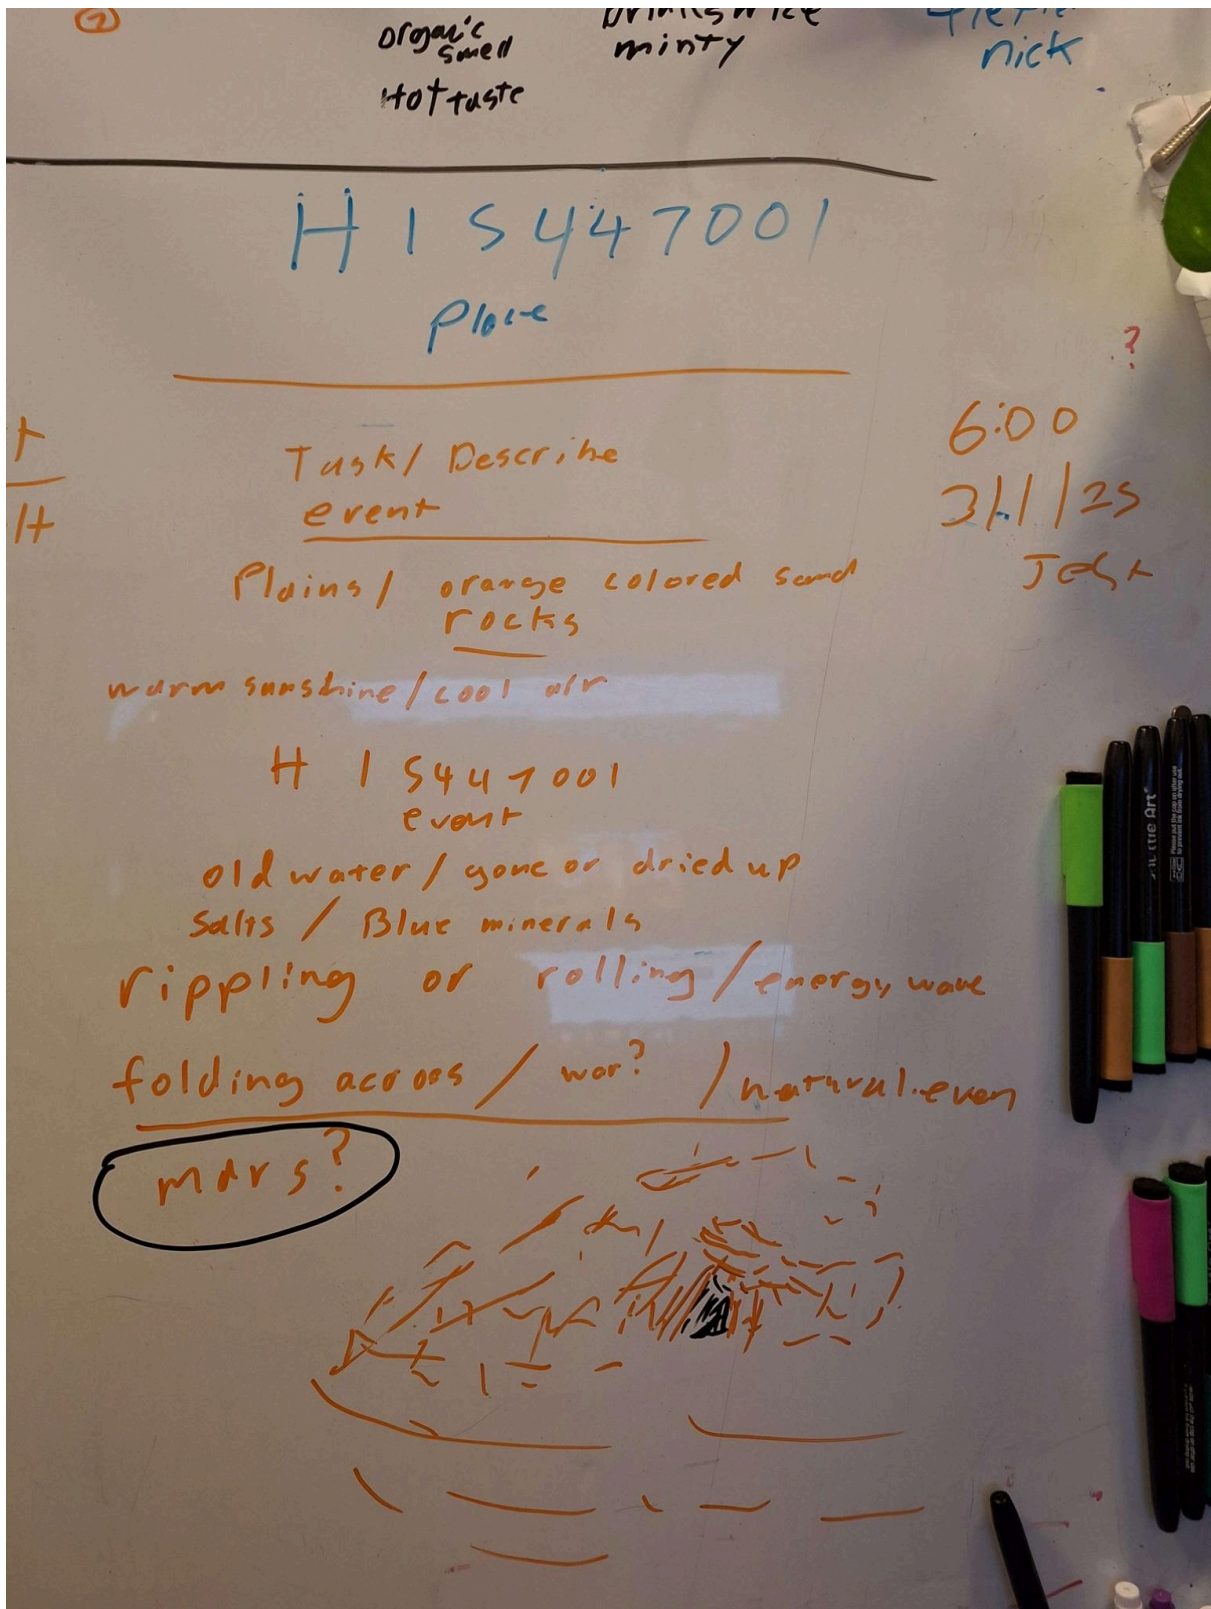 2
organic
smell
Hot taste
minty
nick
H 1 S447001
Place
?
Task/ Describe
event
6:00
3/1/25
Plains/ orange colored sand
rocks
warm sunshine/cool air
H 1 S447001
event
old water / gone or dried up
Salts / Blue minerals
rippling or rolling / energy wave
folding across / war? / natural even
mars?